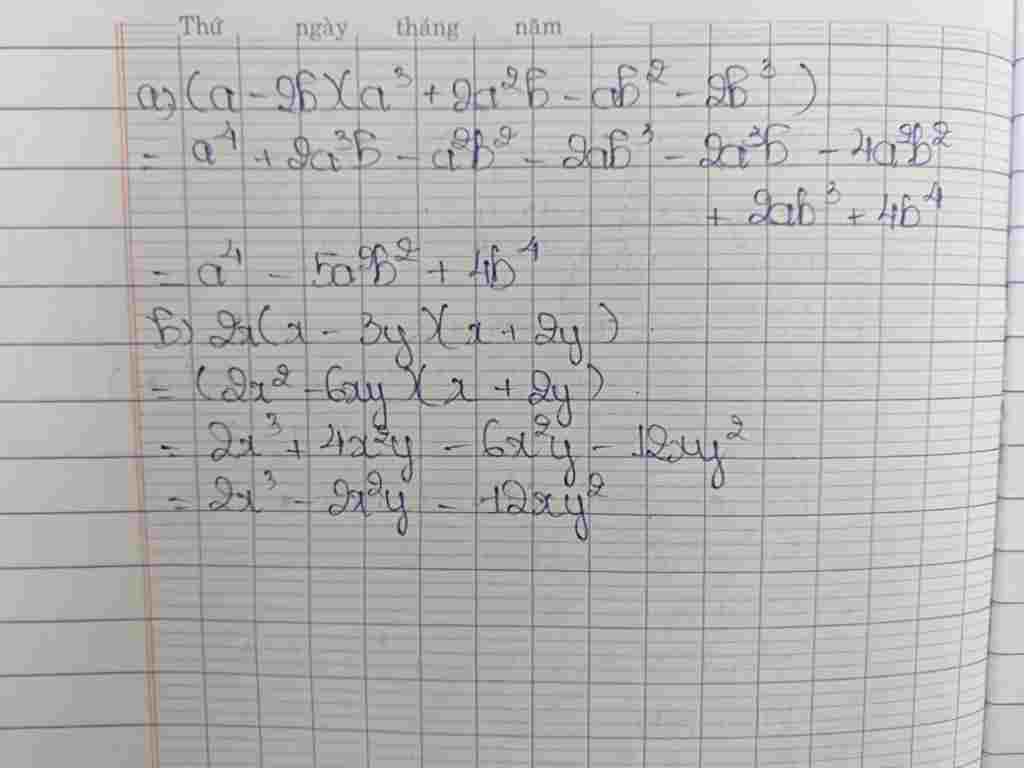 Thứ ngày tháng năm
a) (a - 2b)(a³ + 2a²b - ab² - 2b³)
= a⁴ + 2a³b - a²b² - 2ab³ - 2a³b - 4a²b²
+ 2ab³ + 4b⁴
= a⁴ - 5a²b² + 4b⁴
b) 2x(x - 3y)(x + 2y)
= (2x² - 6xy)(x + 2y)
= 2x³ + 4x²y - 6x²y - 12xy²
= 2x³ - 2x²y - 12xy²